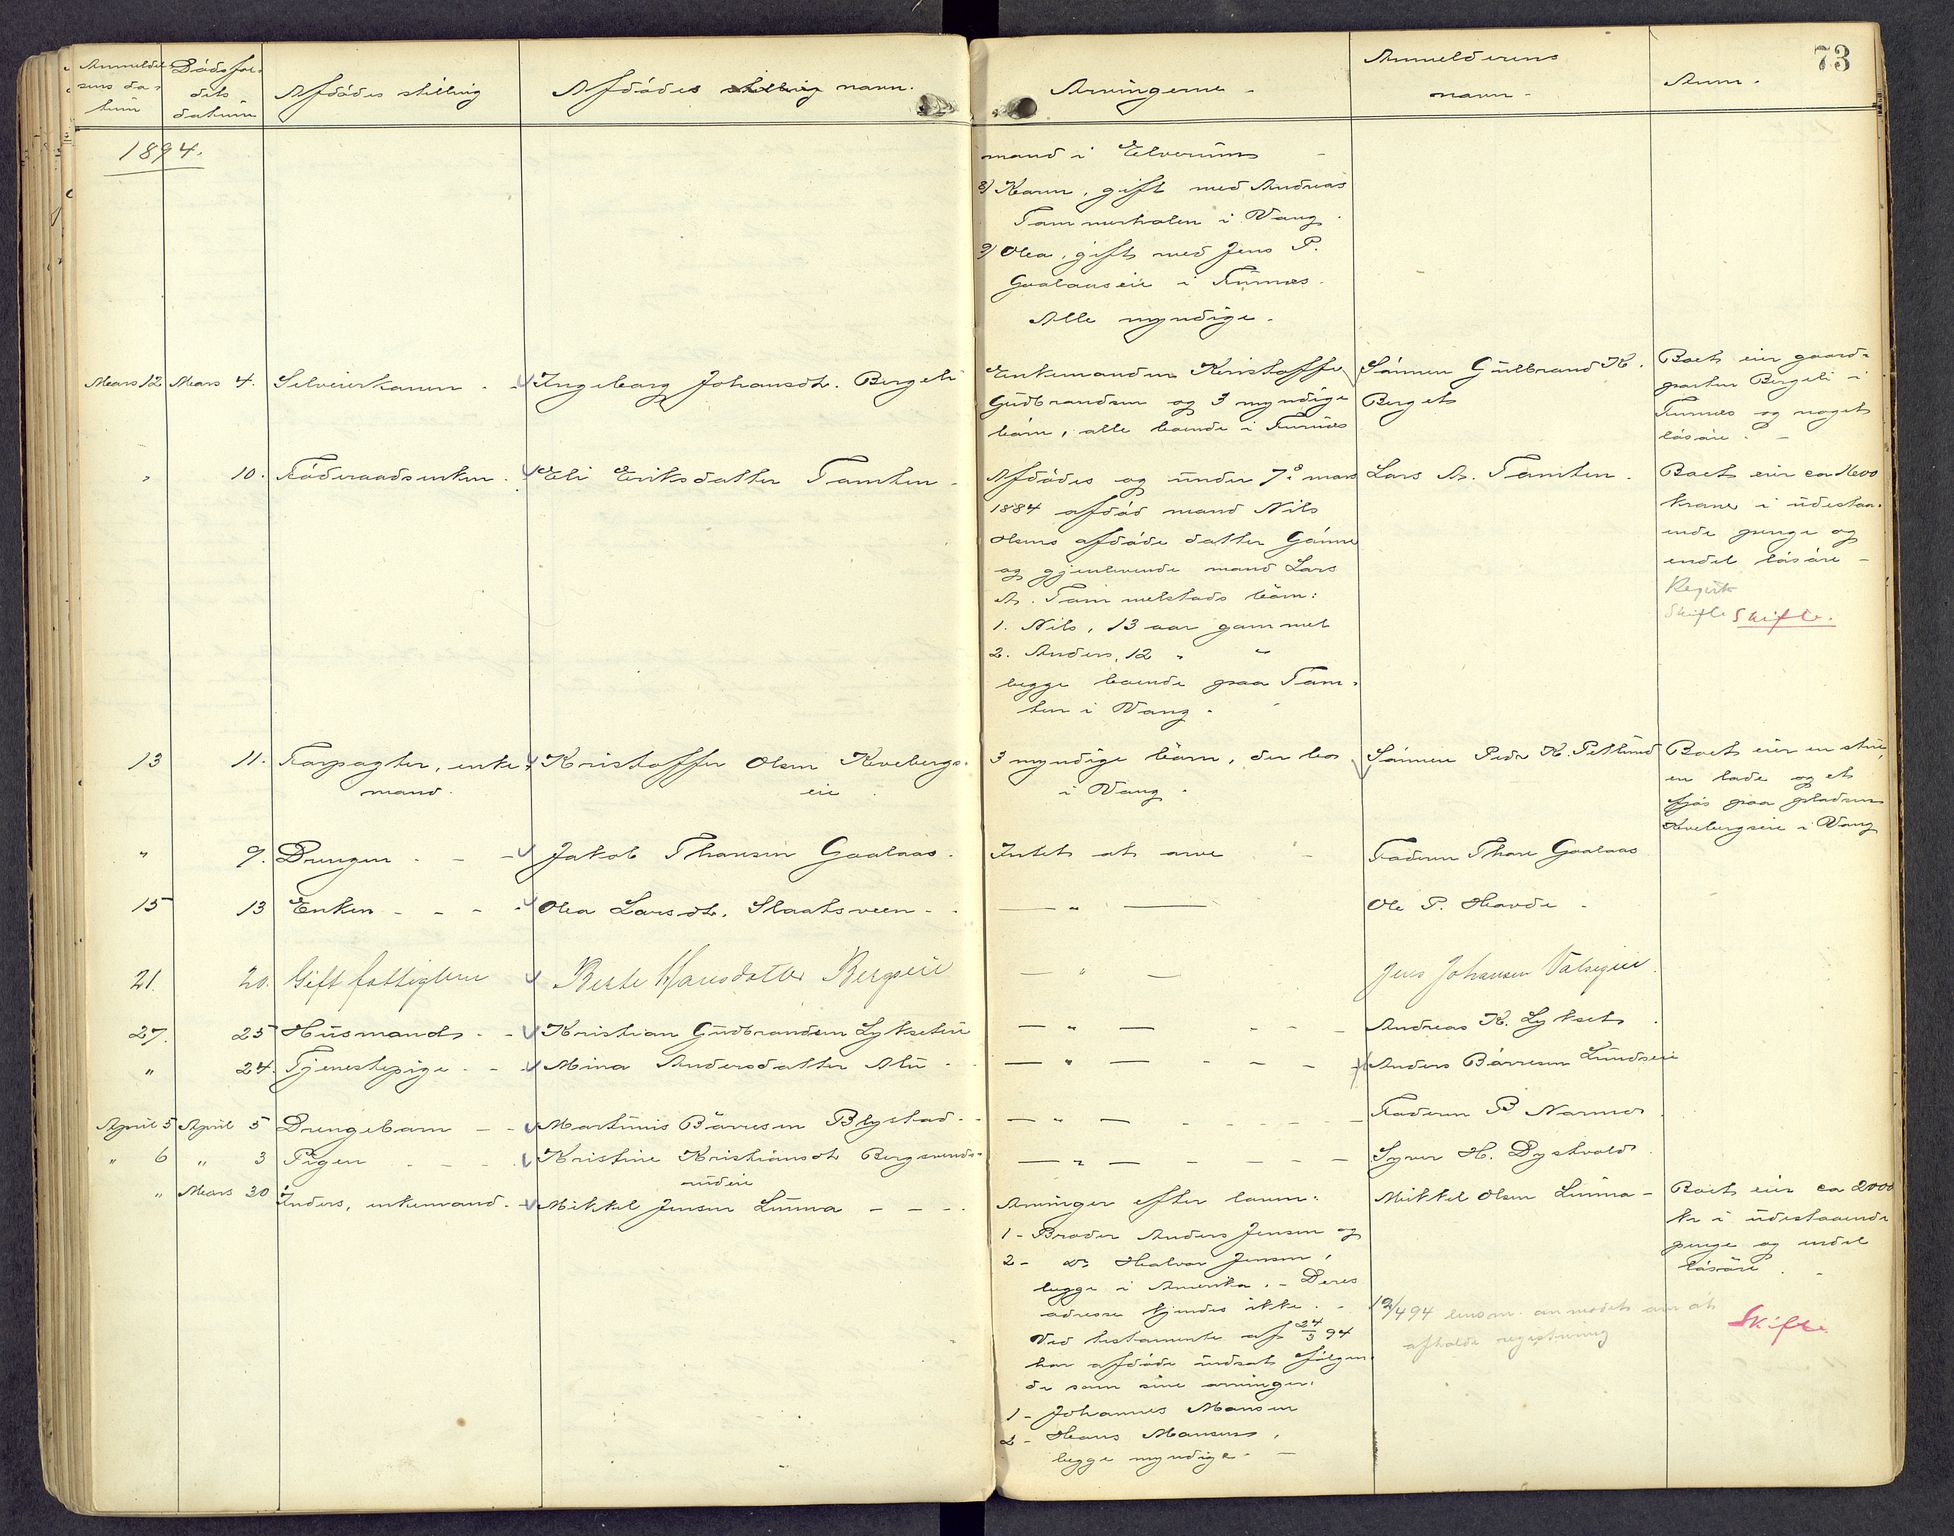 73
Anmeldel-
sens da-
tum
Dødsfal-
dets
datum
Afdødes stilling
Afdødes stilling navn.
Arvingerne -
Anmelderens
navn -
Anm.
1894.
mand i Elverum
8) Karen, gift med Andreas
i Vang.
9) Olea, gift med Jens P.
Gaalaaseie i Furnes.
Alle myndige.
Mars 12 Mars 4. Selveierkonen - Ingeborg Johansdt. Bergeli
Enkemanden Kristoffer
Gudbrandsen og 3 myndige
børn, alle boende i Furnes
Sønnen Gulbrand K.
Berget
Boet eier gaard-
parten Bergeli i
Furnes og noget
løsøre. -
" 10. Føderaadsenken. Eli Eriksdatter Tomten -
Afdødes og under 7de mars
1884 afdød mand Nils
Olsens afdøde datter
og gjenlevende mand Lars
A. Tommelstads børn:
1. Nils, 13 aar gammel
2. Anders, 12 " "
begge boende paa Tom-
ten i Vang.
Lars A. Tomten.
Boet eier ca 1600
kroner i udestaa-
ende penge og
endel løsøre -
Skifte Skifte.
13 11. Forpagter, enke-
mand.
Kristoffer Olsen Kvebergs-
eie.
3 myndige børn, der bor
i Vang.
Sønnen Peder K. Petlund
Boet eier en stue,
en lade og et
fjøs paa pladsen
Kvebergseie i Vang
" 9. Drengen - - - Jakob Thoresen Gaalaas.
Intet at arve
Faderen Thore Gaalaas
15 13 Enken - - - Olea Larsdt. Slaatsveen -
— " —
Ole P. Hovde -
21. 20. Gift fattiglem Berte Hansdatter Bergseie
— " —
Jens Johansen Valseie.
27. 25 Husmand - - Kristian Gudbrandsen Lykseteie
— " — - - -
Andreas K. Lykset.
" 24. Tjenestepige. - - Mina Andersdatter Alu -
— " — - - - -
Anders Børresen Lundseie
April 5 April 5 Drengebarn - - Martinus Børresen Blystad -
— " — - - - - -
Faderen B Narmo.
" 6 " 3 Pigen - - - Kristine Kristiansdt. Bergsvends-
rudeie
— " — - - - -
Syver H. Dystvold.
" Mars 30 Inders, enkemand. - Mikkel Jensen Limna - - -
Arvinger efter loven:
1 - Broder Anders Jensen og
2 - Do Halvor Jensen,
begge i Amerika. - Deres
adresse kjendes ikke. -
Ved testamente af 24/3 94
har afdøde indsat følgen-
de som sine arvinger:
1 - Johannes Monsen
2 - Hans Monsen,
begge myndige. -
Mikkel Olsen Limna -
12/4 94 lensm. anmodet om at
afholde registrering
Boet eier ca 2000
kr i udestaaende
penge og endel
løsøre. -
Skifte.